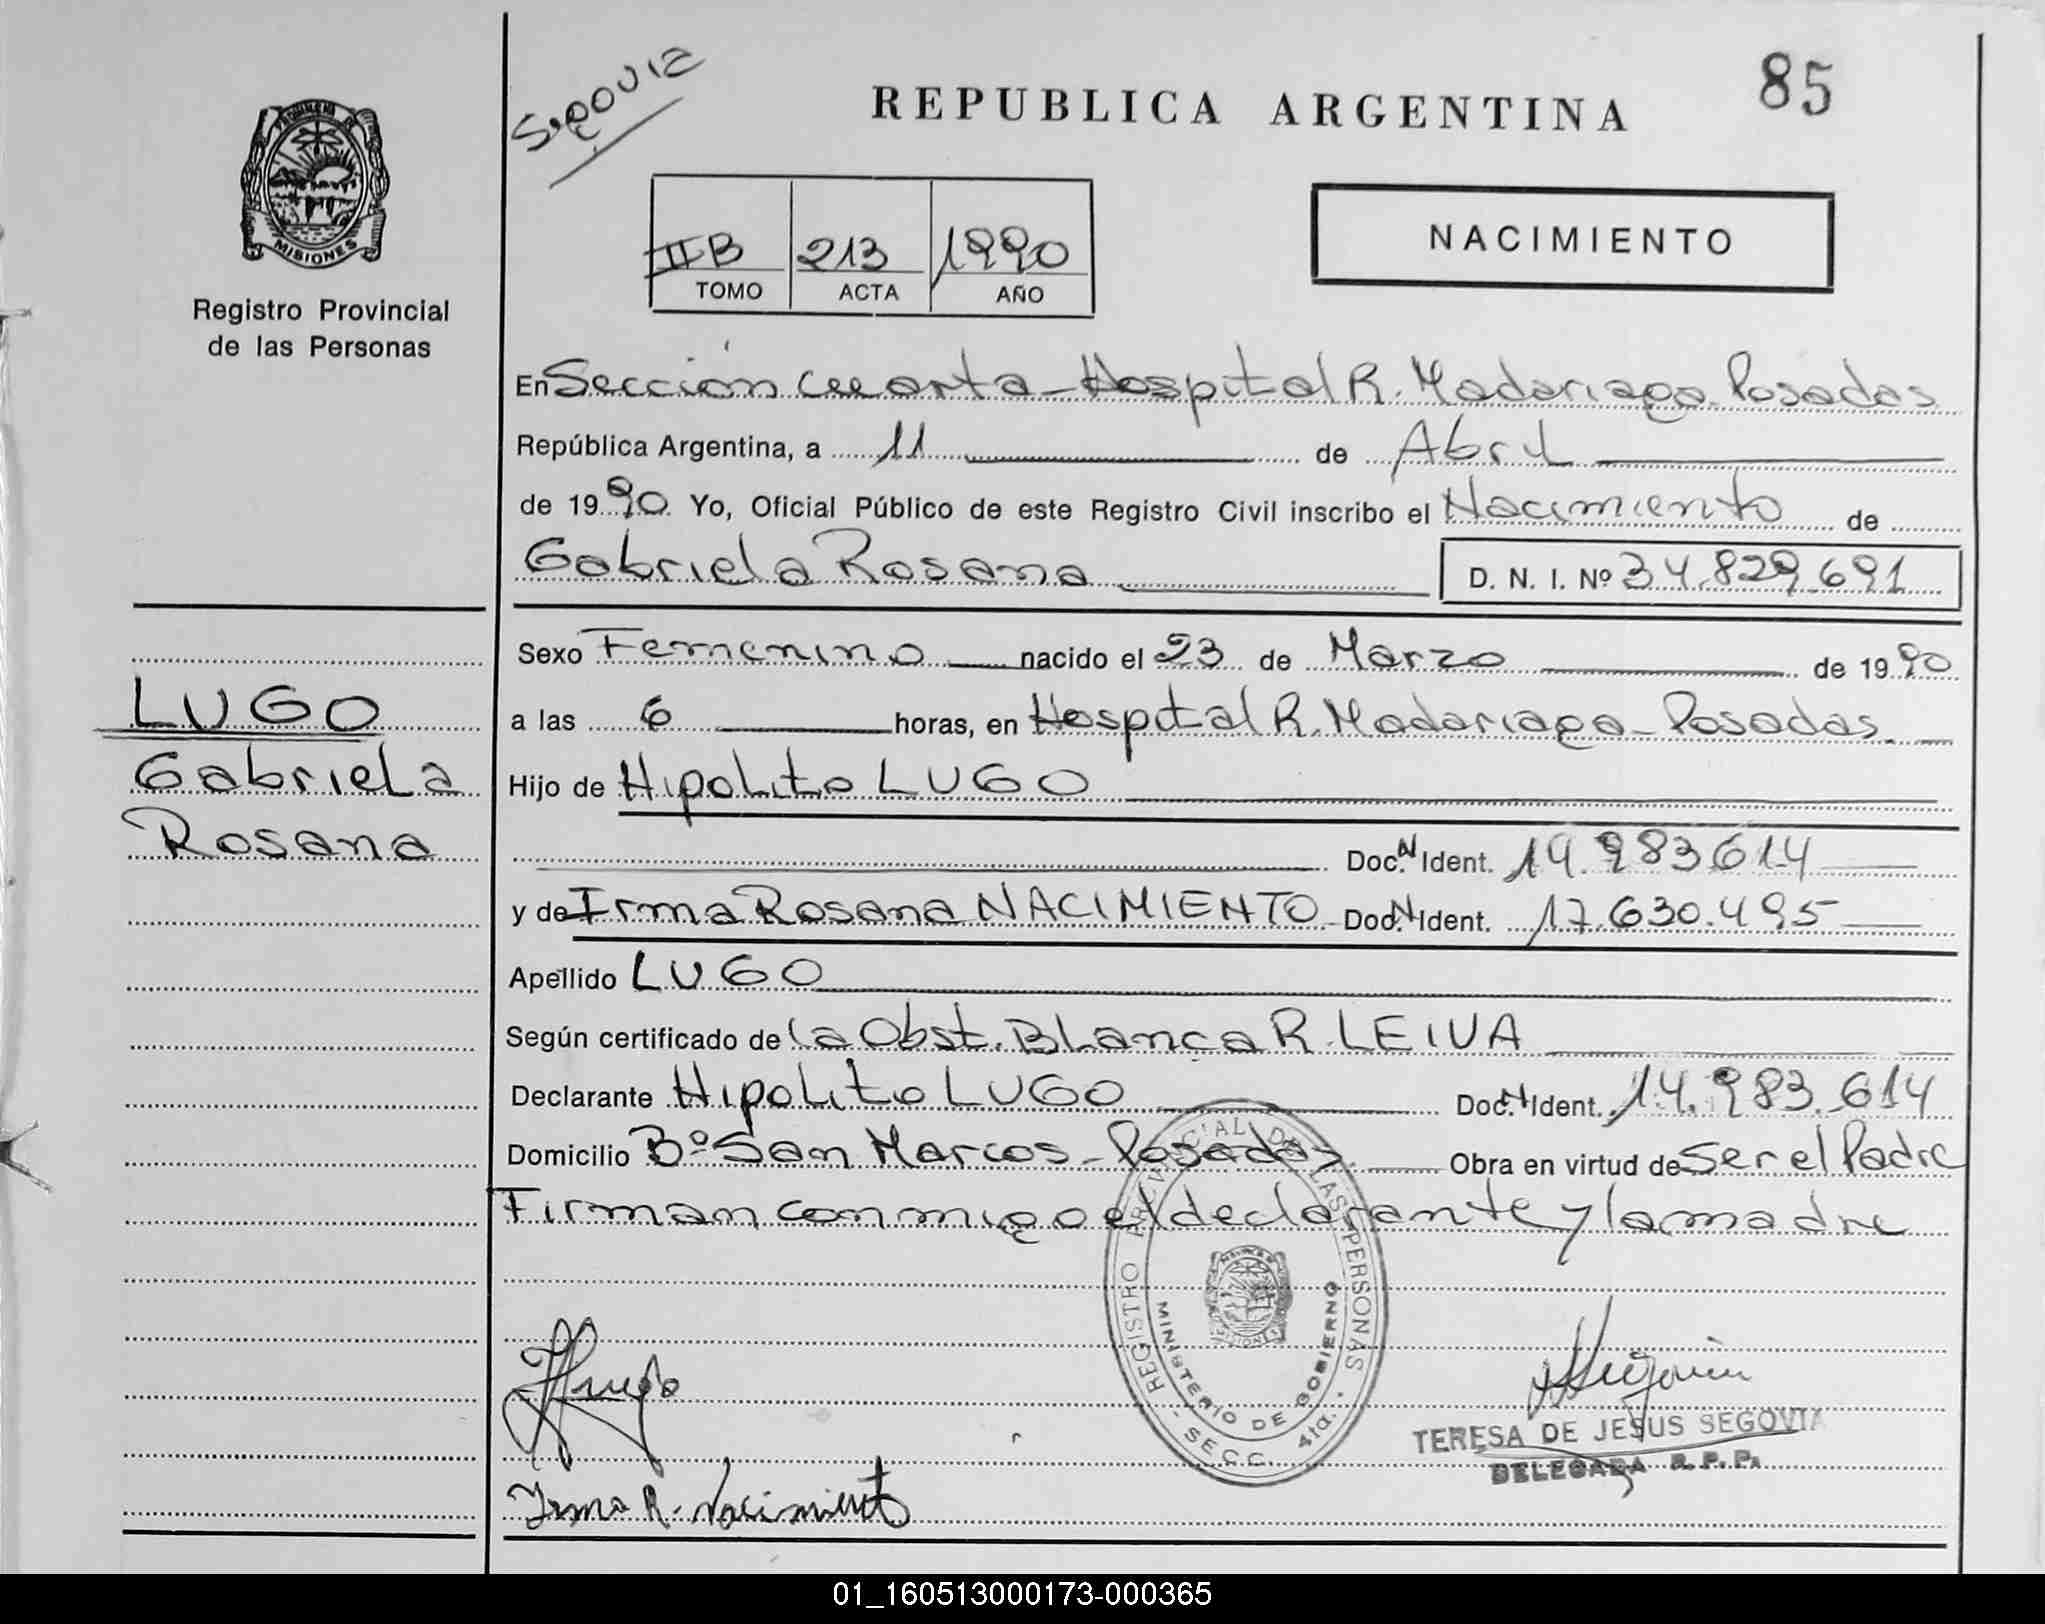 Segovia
REPUBLICA ARGENTINA
85
MISIONES
Registro Provincial
de las Personas
II B 213 1990
TOMO ACTA AÑO
NACIMIENTO
En Sección Cuarta - Hospital R. Madariaga Posadas
República Argentina, a 11 de Abril
de 1990 Yo, Oficial Público de este Registro Civil inscribo el Nacimiento de
Gabriela Rosana D. N. I. Nº 34.829.691
Sexo Femenino nacido el 23 de Marzo de 1990
a las 6 horas, en Hospital R. Madariaga - Posadas
Hijo de Hipolito LUGO
Doc. N Ident. 14.983614
y de Irma Rosana NACIMIENTO Doc. N Ident. 17.630.495
Apellido LUGO
Según certificado de la Obst. Blanca R. LEIVA
Declarante Hipolito LUGO Doc. N Ident. 14.983.614
Domicilio Bº San Marcos - Posadas Obra en virtud de Ser el Padre
Firman conmigo el declarante y la madre
LUGO
Gabriela
Rosana
REGISTRO PROVINCIAL DE LAS PERSONAS
MINISTERIO DE GOBIERNO
- SECC. 4ta. -
MISIONES
HLugo
Irma R. Nacimiento
Segovia
TERESA DE JESUS SEGOVIA
DELEGADA R. P. P.
01_160513000173-000365